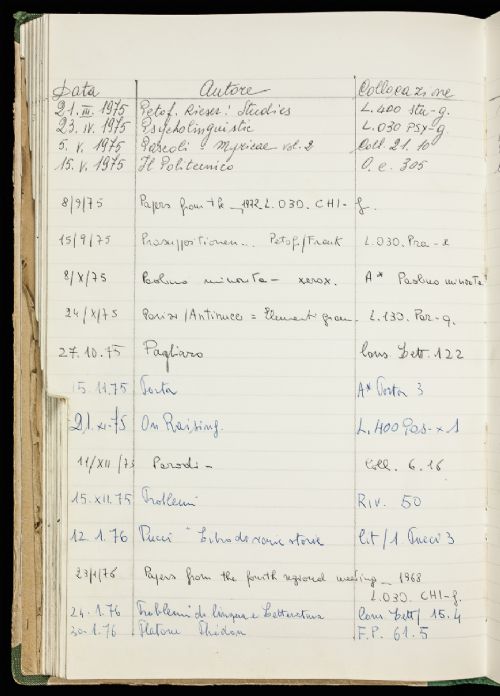 Data Autore Collocazione
21. III. 1975 Petöf. Rieser: Studies L.400 Stu-g.
23. IV. 1975 Psycholinguistic L.030 Psy-g.
5. V. 1975 Pascoli Myricae vol. 2 Coll. 21. 10
15. V. 1975 Il Politecnico O. e. 305
8/9/75 Papers from the _ 1972 L.030. CHI-f.
15/9/75 Praesuppositionen... Petöf/Frank L.030. Pra-
8/X/75 Paolino minorita - xerox. A* Paolino minorita
24/X/75 Parisi/Antinucci = Elementi gram. L.130. Par-g.
27.10.75 Pagliaro Cons. Lett. 122
15.11.75 Porta A* Porta 3
21.XI.75 On Raising. L.400 Pos- 1
11/XII/75 Parodi - Coll. 6.16
15.XII.75 Problemi RIV. 50
12.1.76 Pucci Libro di varie storie Cit/1 Pucci 3
23/1/76 Papers from the fourth regional meeting _ 1968
L.030. CHI-f.
24.1.76 Problemi di lingua e Letteratura Cons. Lett/ 15.4
30.1.76 Platone Phidon F.P. 61.5